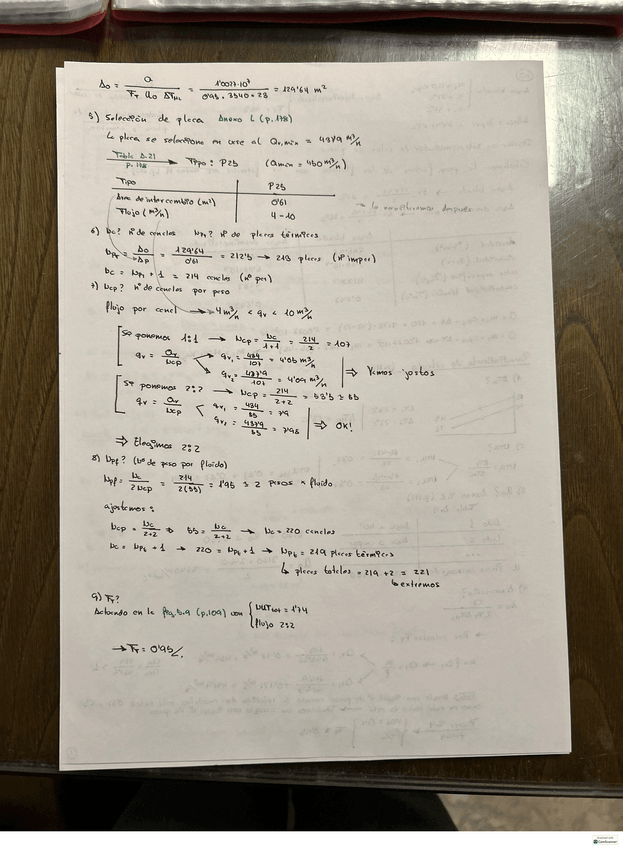 A₀ = Q / (F_T U₀ ΔT_ML) = 1'0027·10⁷ / (0'95 · 3540 · 23) = 129'64 m²
5) Selección de placa Anexo L (p.178)
La placa se selecciona en base al Qv,máx = 437'9 m³/h
Tabla A.21 p.178 → Tipo: P25 (Qmáx = 450 m³/h)
Tipo | P25
Área de intercambio (m²) | 0'61
Flujo (m³/h) | 4-10 → lo emplearemos después
6) Nc? nº de canales Npt? nº de placas térmicas
Npt = A₀/Ap = 129'64/0'61 = 212'5 → 213 placas (nº impar)
Nc = Npt + 1 = 214 canales (nº par)
7) Ncp? nº de canales por paso
Flujo por canal → 4 m³/h < qv < 10 m³/h
Si ponemos 1:1 → Ncp = Nc/(1+1) = 214/2 = 107
qv = Qv/Ncp qv₁ = 434/107 = 4'05 m³/h
qv₂ = 437'9/107 = 4'09 m³/h ⇒ Vamos justos
Si ponemos 2:2 → Ncp = 214/(2+2) = 53'5 ≅ 55
qv = Qv/Ncp qv₁ = 434/55 = 7'9
qv₂ = 437'9/55 = 7'96 ⇒ OK!
⇒ Elegimos 2:2
8) Npf? (nº de paso por fluido)
Npf = Nc/(2 Ncp) = 214/(2(55)) = 1'95 ≅ 2 pasos × fluido
ajustamos:
Ncp = Nc/(2+2) ⇒ 55 = Nc/(2+2) → Nc = 220 canales
Nc = Npt + 1 → 220 = Npt + 1 → Npt = 219 placas térmicas
↳ placas totales = 219 + 2 = 221
↳ extremos
9) F_T?
Actuando en la Fig. 5.9 (p.109) con { NUTtot = 1'74
flujo 2:2
→ F_T = 0'95
CamScanner